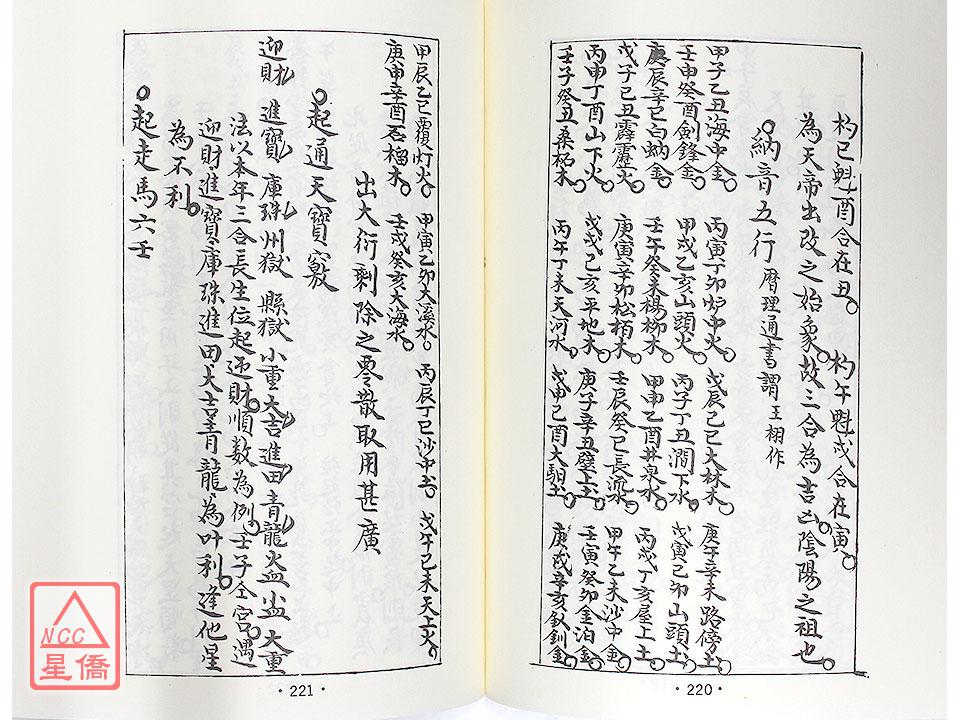 杓巳魁酉合在丑。杓午魁戌合在寅。
為天帝出政之始象。故三合為吉凶陰陽之祖也。
。納音五行 曆理通書謂王栩作
甲子乙丑海中金。丙寅丁卯炉中火。戊辰己巳大林木。庚午辛未路傍土。
壬申癸酉劍鋒金。甲戌乙亥山頭火。丙子丁丑澗下水。戊寅己卯山頭土。
庚辰辛巳白蚋金。壬午癸未楊柳木。甲申乙酉井泉水。丙戌丁亥屋上土。
戊子己丑霹靂火。庚寅辛卯松栢木。壬辰癸巳長流水。甲午乙未沙中金。
丙申丁酉山下火。戊戌己亥平地木。庚子辛丑壁上土。壬寅癸卯金泊金。
壬子癸丑桑柘木。丙午丁未天河水。戊申己酉大驛土。庚戌辛亥釵釧金。
· 220 ·
甲辰乙巳覆灯火。甲寅乙卯大溪水。丙辰丁巳沙中土。戊午己未天上火。
庚申辛酉石榴木。壬戌癸亥大海水。
出大衍剩除之零散取用甚廣
。起通天寶竅
迎財 進寶 庫珠 州獄 縣獄 小重 大吉 進田 青龍 火血 大重
法以本年三合長生位起迎財。順数為例。壬子全宮。遇
迎財進寶庫珠進田大吉青龍為叶利。逢他星
為不利。
。起走馬六壬
· 221 ·
NCC
星僑